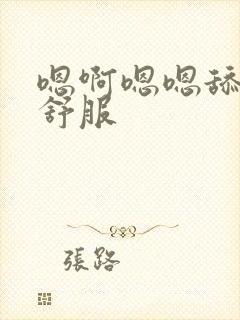 嗯啊嗯嗯舔
舒服
張路